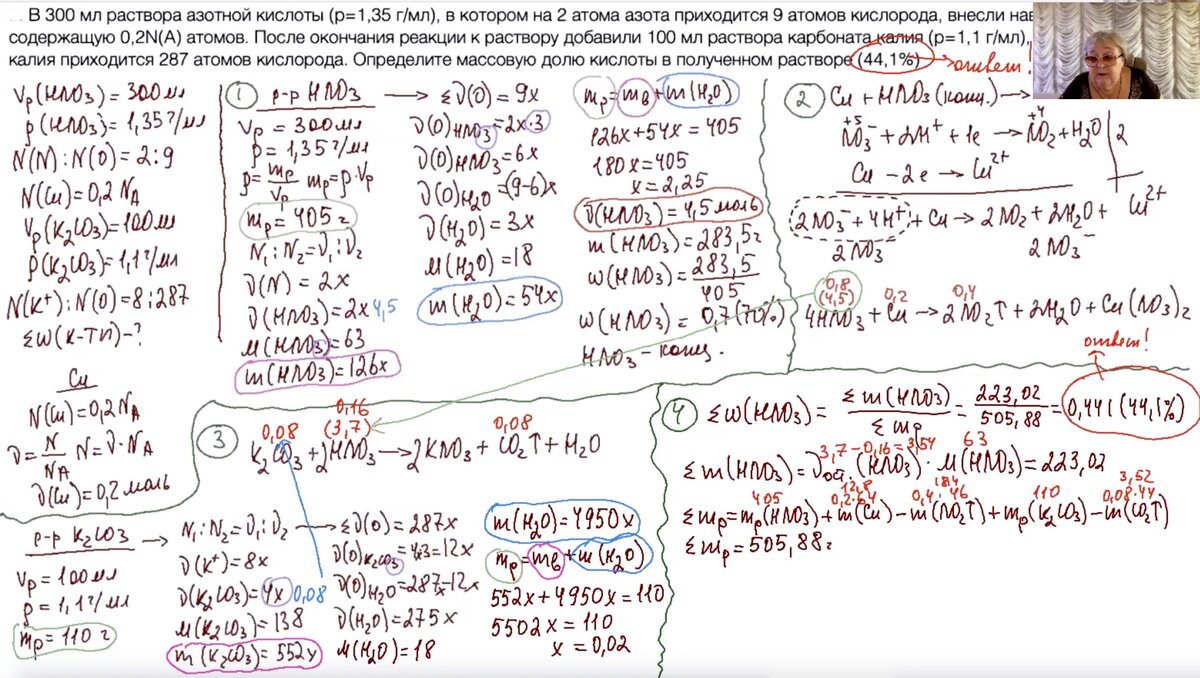 В 300 мл раствора азотной кислоты (p=1,35 г/мл), в котором на 2 атома азота приходится 9 атомов кислорода, внесли
содержащую 0,2N(A) атомов. После окончания реакции к раствору добавили 100 мл раствора карбоната калия (p=1,1 г/мл),
калия приходится 287 атомов кислорода. Определите массовую долю кислоты в полученном растворе (44,1%) → ответ!
Vр(HNO3) = 300 мл
ρ(HNO3) = 1,35 г/мл
N(N) : N(O) = 2 : 9
N(Cu) = 0,2 NA
Vр(K2CO3) = 100 мл
ρ(K2CO3) = 1,1 г/мл
N(K+) : N(O) = 8 : 287
Σω(к-ты) - ?
Cu
N(Cu) = 0,2 NA
ν = N/NA N = ν · NA
ν(Cu) = 0,2 моль
1 р-р HNO3
Vр = 300 мл
ρ = 1,35 г/мл
ρ = mр/Vр mр = ρ · Vр
mр = 405 г
N1 : N2 = ν1 : ν2
ν(N) = 2x
ν(HNO3) = 2x 4,5
M(HNO3) = 63
m(HNO3) = 126x
→ Σν(O) = 9x
ν(O)HNO3 = 2x·3
ν(O)HNO3 = 6x
ν(O)H2O = (9-6)x
ν(H2O) = 3x
M(H2O) = 18
m(H2O) = 54x
mр = mв + m(H2O)
126x + 54x = 405
180x = 405
x = 2,25
ν(HNO3) = 4,5 моль
m(HNO3) = 283,5 г
ω(HNO3) = 283,5/405
ω(HNO3) = 0,7 (70%)
HNO3 - конц.
2 Cu + HNO3 (конц.) →
+5 +4
NO3⁻ + 2H⁺ + 1e → NO2 + H2O | 2
Cu - 2e → Cu²⁺
2NO3⁻ + 4H⁺ + Cu → 2NO2 + 2H2O + Cu²⁺
2NO3⁻ 2NO3⁻
0,8 (4,5) 0,2 0,4
4HNO3 + Cu → 2NO2↑ + 2H2O + Cu(NO3)2
3
0,08 0,16 (3,7) 0,08
K2CO3 + 2HNO3 → 2KNO3 + CO2↑ + H2O
р-р K2CO3 →
Vр = 100 мл
ρ = 1,1 г/мл
mр = 110 г
N1 : N2 = ν1 : ν2
ν(K+) = 8x
ν(K2CO3) = 4x 0,08
M(K2CO3) = 138
m(K2CO3) = 552x
→ Σν(O) = 287x
ν(O)K2CO3 = 4x·3 = 12x
ν(O)H2O = 287x-12x
ν(H2O) = 275x
M(H2O) = 18
m(H2O) = 4950x
mр = mв + m(H2O)
552x + 4950x = 110
5502x = 110
x = 0,02
ответ!
4 Σω(HNO3) = Σm(HNO3)/Σmр = 223,02/505,88 = 0,441 (44,1%)
3,7 - 0,16 = 3,54 63
Σm(HNO3) = νост.(HNO3) · M(HNO3) = 223,02
405 12,8 0,2·64 18,4 0,4·46 110 3,52 0,08·44
Σmр = mр(HNO3) + m(Cu) - m(NO2↑) + mр(K2CO3) - m(CO2↑)
Σmр = 505,88 г